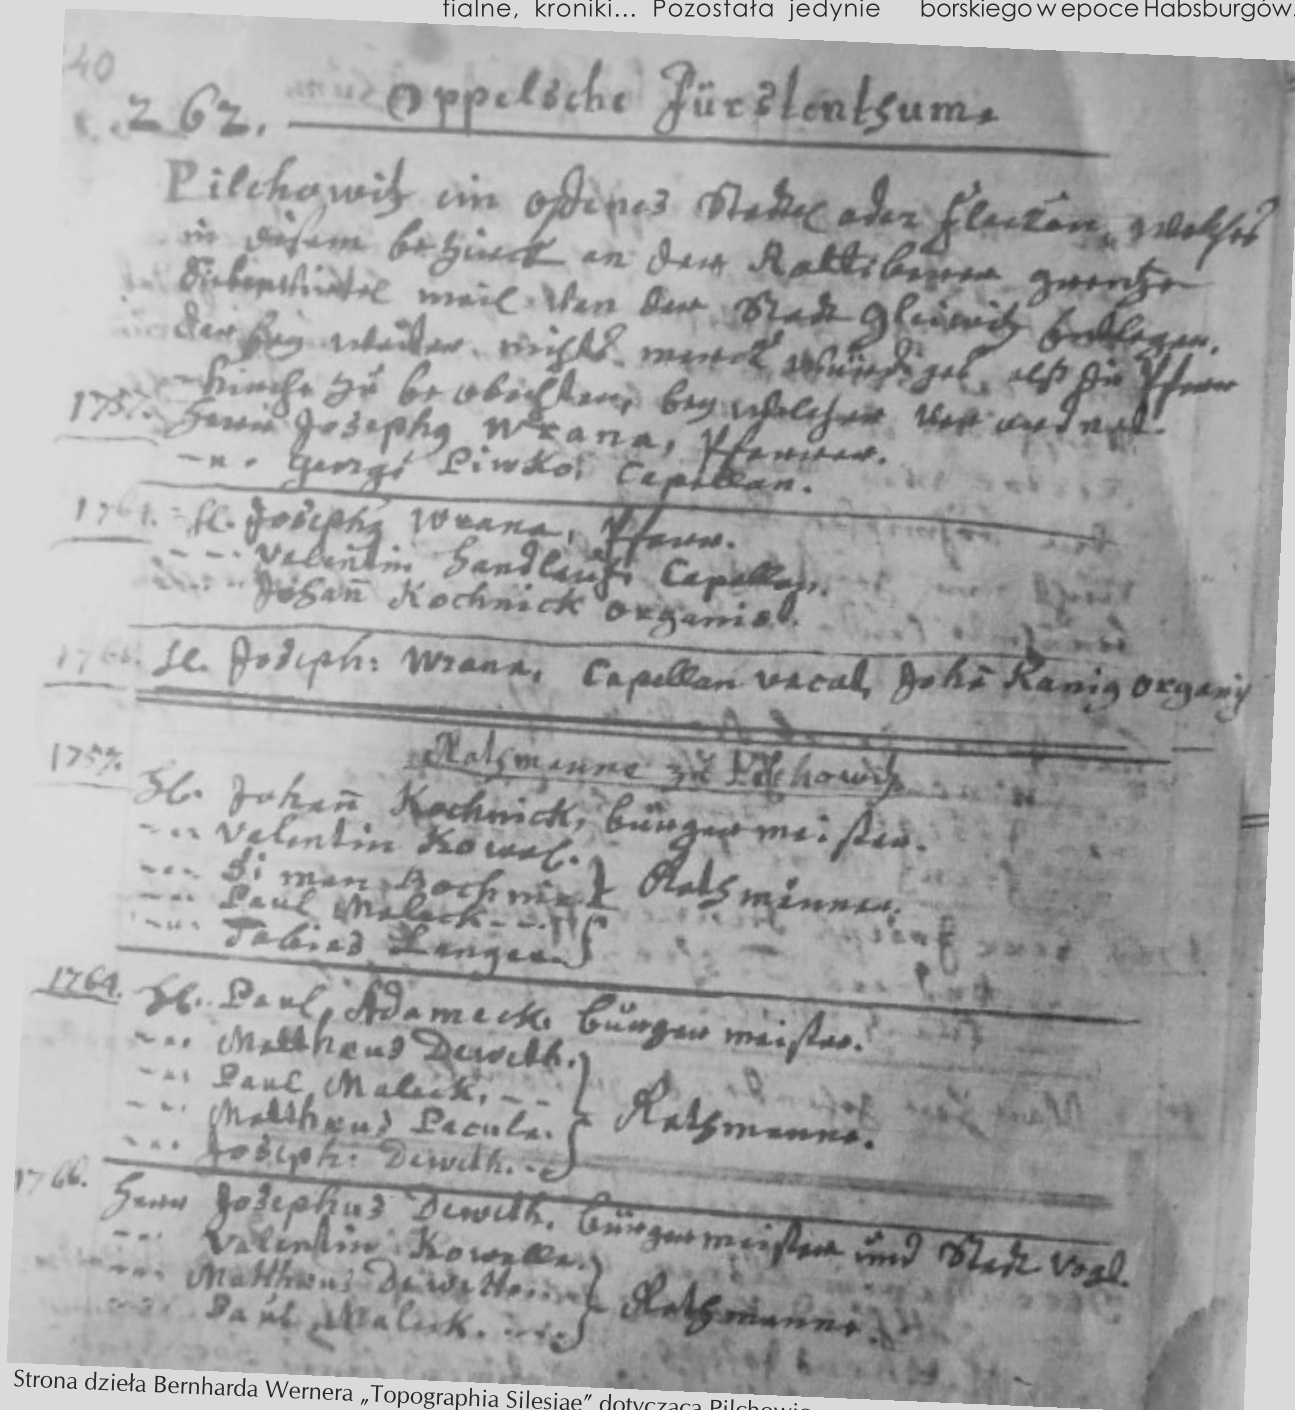 fialne, kroniki... Pozostała jedynie
borskiego w epoce Habsburgów.
40
262. Oppelsche Fürstenthum.
Pilchowitz ein offenes Stadtel oder Flecken, welches
in diesem bezirck an der Rattiborer grentze
Siebenviertel meil von der Stadt Gleiwitz entlegen,
weiter nichts merckwürdiges, alß die Pfarr
Kirche zu beobachten, bey welcher verordnet.
1757. Herr Josephg Wrana, Pfarrer.
Georg Piwko, Capellan.
1764. H. Josephg Wrana, Pfarr.
Valentin Capellan.
Johan̄ Kochnick Organist.
1766. H. Joseph: Wrana, Capellan vacat, Joh̄a Kanig organig
Rathsmanne zu Pilchowitz
1757. Hl. Johan̄ Kochnick, bürgermeister.
Valentin Kowal.
Simon Kochnick
Rathsmänner.
Paul Maleck
Tobias Langer
1764. Hl. Paul Adameck, bürgermeister.
Matthæus Deweth.
Paul Maleck.
Matthæus Pacula.
Rathsmanne.
Joseph: Deweth.
1766. Herr Josephus Deweth, bürgermeister und Stadt Vogt.
Valentin Kowalla.
Matthæus
Rathsmanne.
Paul Maleck.
Strona dzieła Bernharda Wernera „Topographia Silesiae” dotycząca Pilchowic